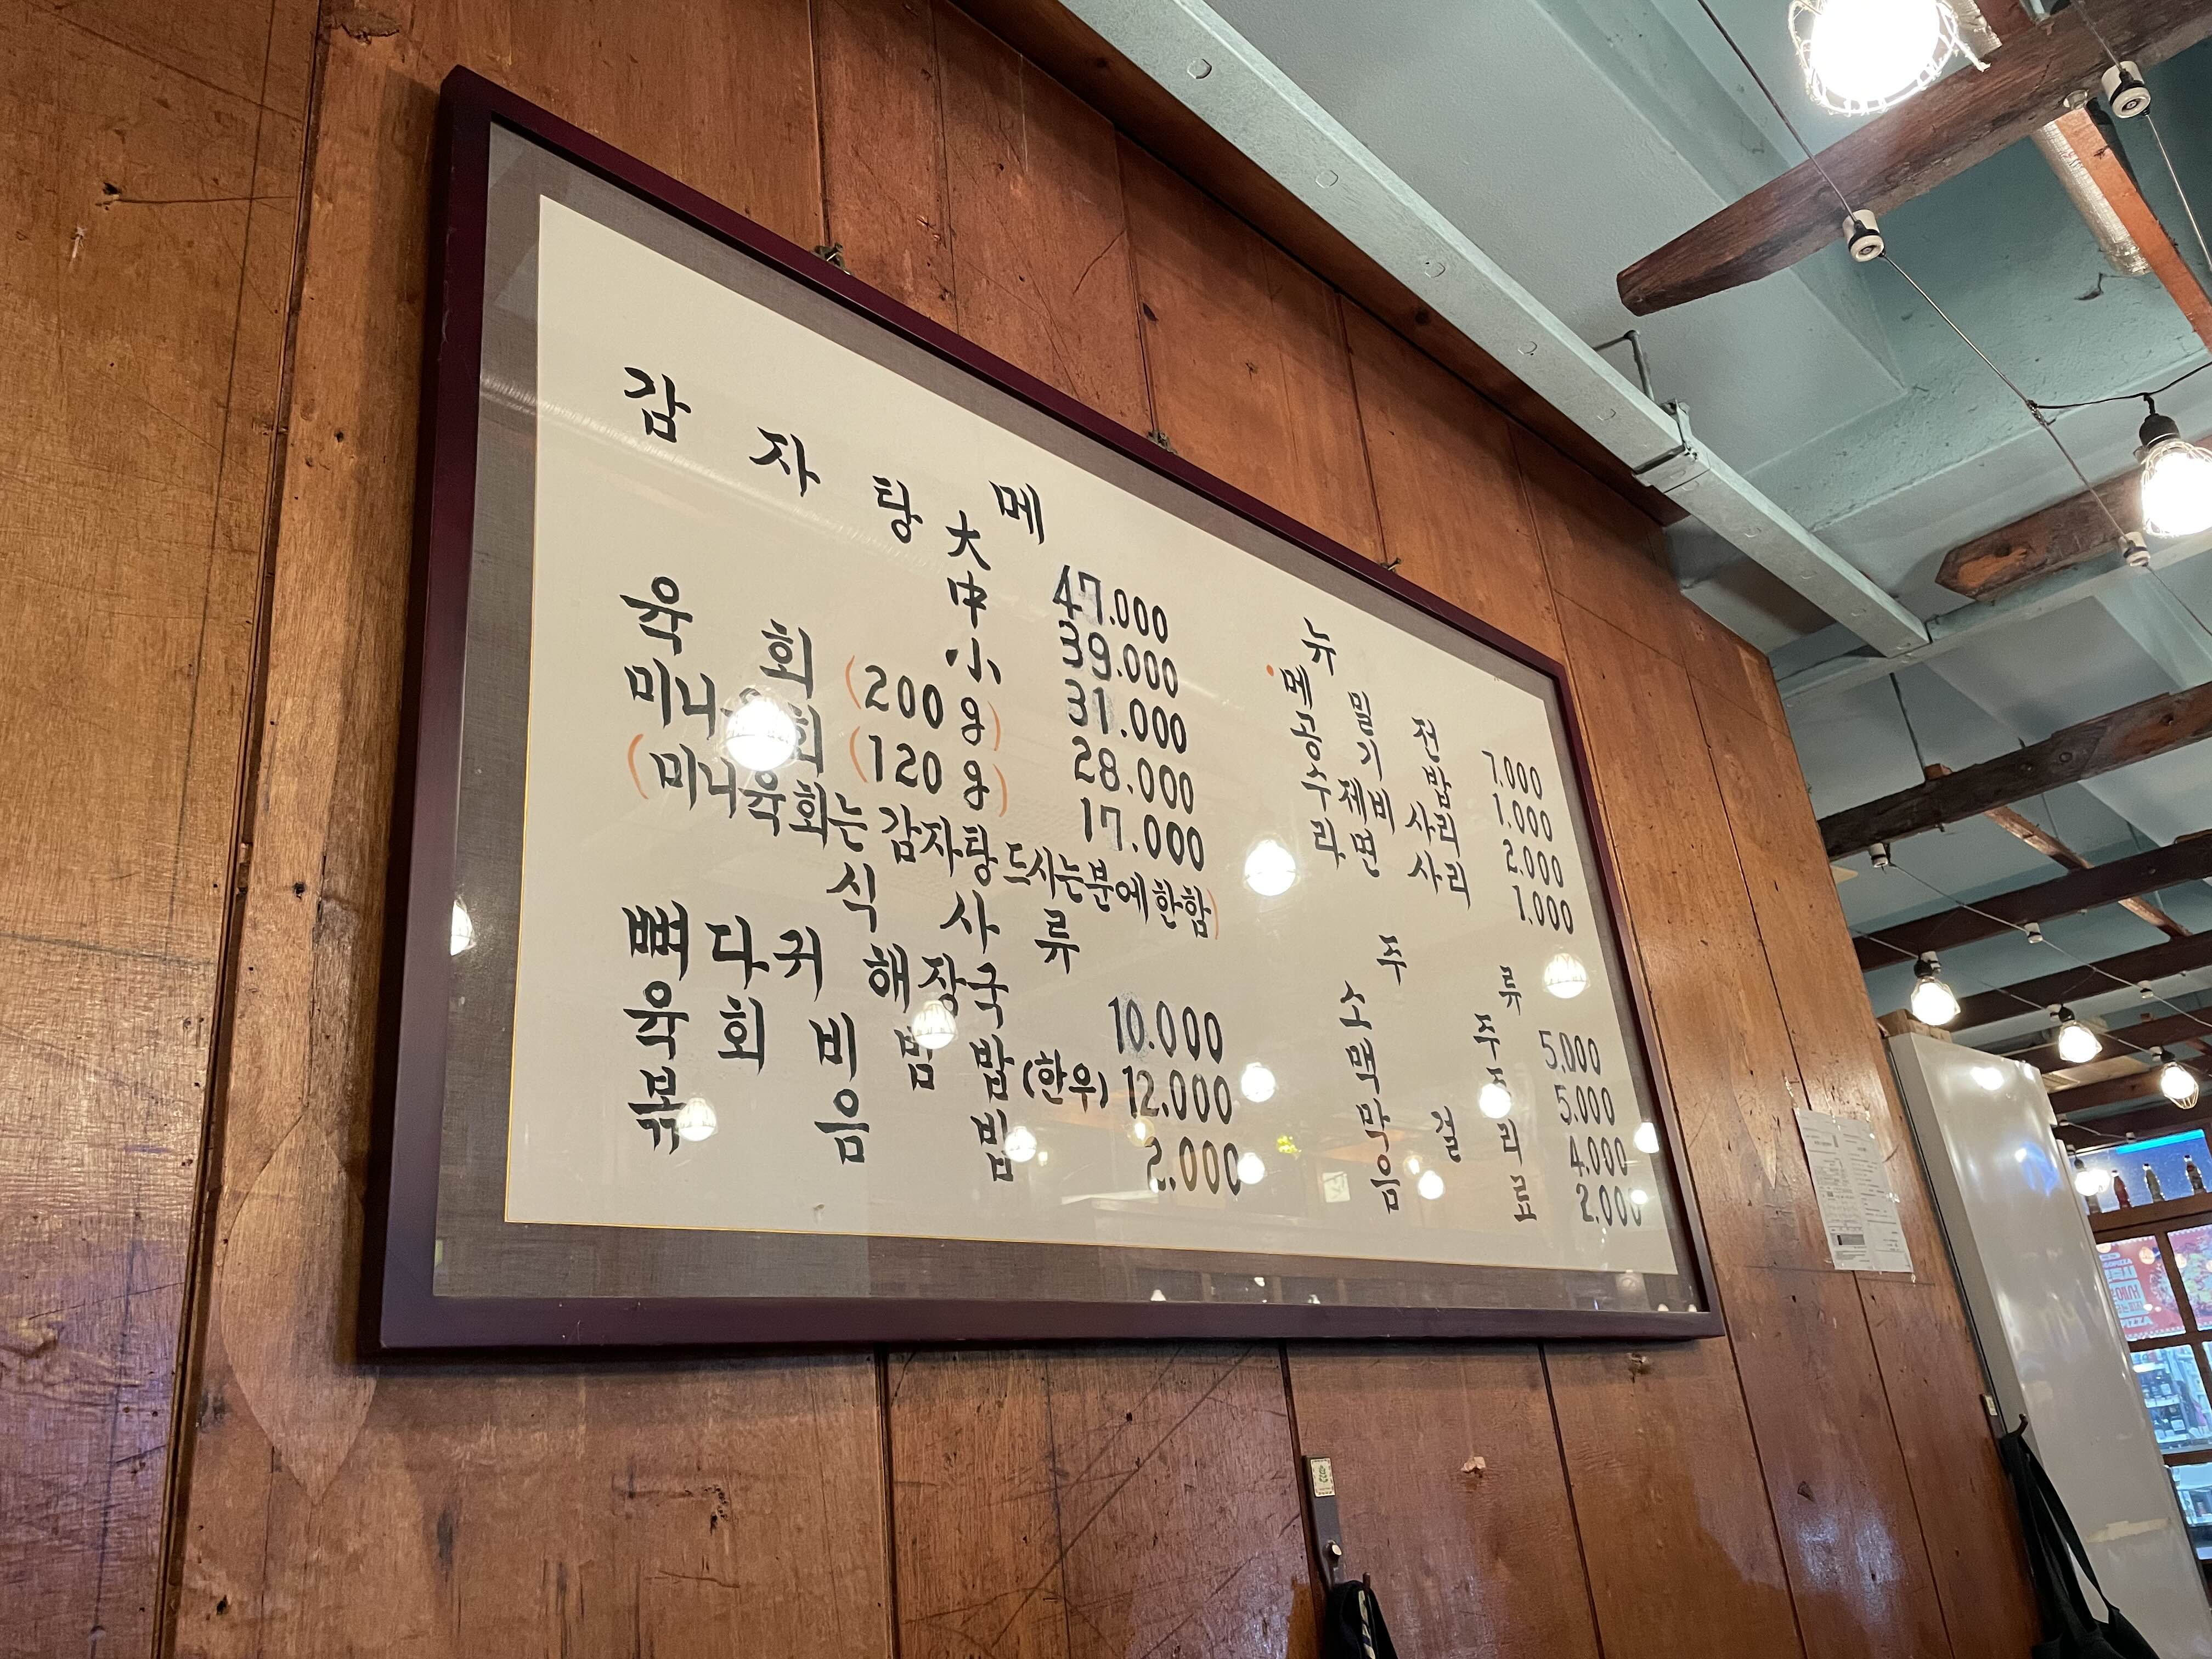 메 뉴
감 자 탕 大 47.000
中 39.000
小 31.000
육 회 (200g) 28.000
미니육회 (120g) 17.000
(미니육회는 감자탕 드시는분에한함)
식 사 류
뼈다귀 해장국 10.000
육회 비빔밥(한우) 12.000
볶 음 밥 2.000
메밀전 7.000
공기밥 1.000
수제비사리 2.000
라면사리 1.000
주 류
소 주 5.000
맥 주 5.000
막걸리 4.000
음 료 2.000